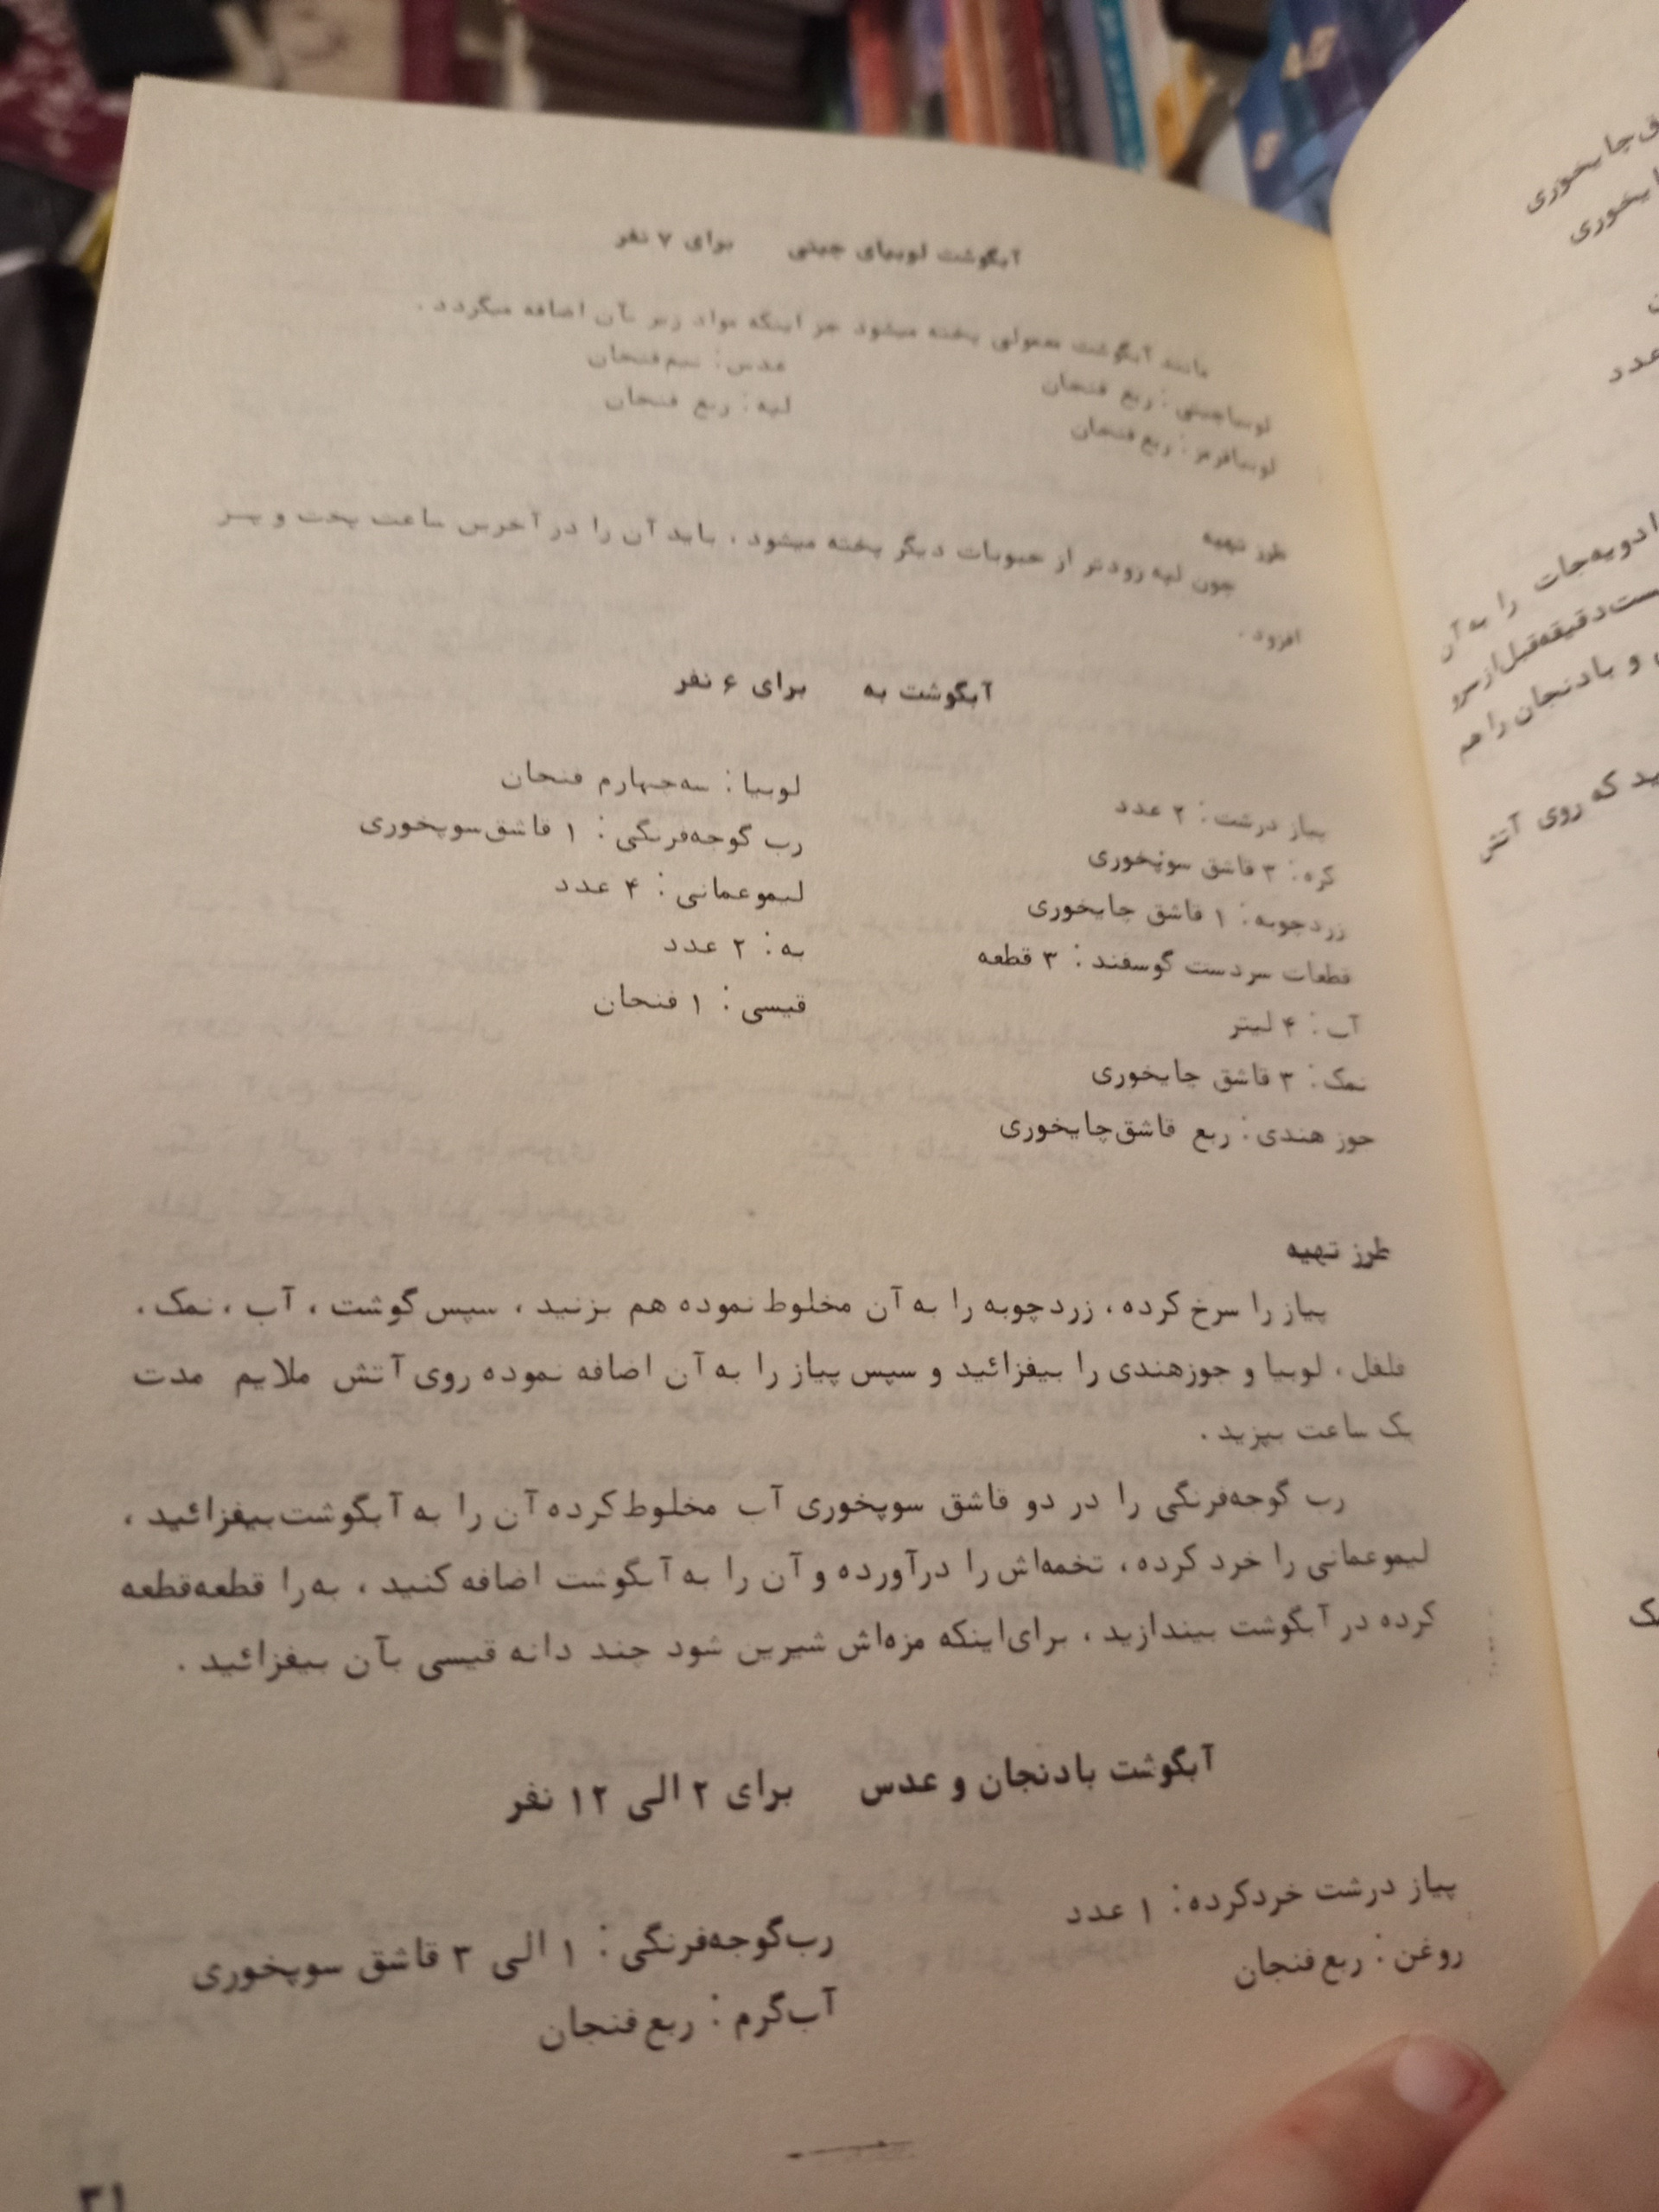 آبگوشت لوبیای چیتی برای ۷ نفر
مانند آبگوشت معمولی پخته میشود جز اینکه مواد زیر بآن اضافه میگردد .
لوبیاچیتی : ربع فنجان
لوبیاقرمز : ربع فنجان
عدس : نیم‌فنجان
لپه : ربع فنجان
طرز تهیه
چون لپه زودتر از حبوبات دیگر پخته میشود ، باید آن را در آخرین ساعت پخت و پـز
افزود .
آبگوشت به برای ۶ نفر
پیاز درشت : ۲ عدد
کره : ۳ قاشق سوپخوری
زردچوبه : ۱ قاشق چایخوری
قطعات سردست گوسفند : ۳ قطعه
آب : ۴ لیتر
نمک : ۳ قاشق چایخوری
جوز هندی : ربع قاشق‌چایخوری
لوبیا : سه‌چهارم فنجان
رب گوجه‌فرنگی : ۱ قاشق‌سوپخوری
لیموعمانی : ۴ عدد
به : ۲ عدد
قیسی : ۱ فنجان
طرز تهیه
پیاز را سرخ کرده ، زردچوبه را به آن مخلوط نموده هم بزنید ، سپس گوشت ، آب ، نمک ،
فلفل ، لوبیا و جوزهندی را بیفزائید و سپس پیاز را به آن اضافه نموده روی آتش ملایم مدت
یک ساعت بپزید .
رب گوجه‌فرنگی را در دو قاشق سوپخوری آب مخلوط کرده آن را به آبگوشت بیفزائید ،
لیموعمانی را خرد کرده ، تخمه‌اش را درآورده و آن را به آبگوشت اضافه کنید ، به‌را قطعه‌قطعه
کرده در آبگوشت بیندازید ، برای‌اینکه مزه‌اش شیرین شود چند دانه قیسی بآن بیفزائید .
آبگوشت بادنجان و عدس برای ۲ الی ۱۲ نفر
پیاز درشت خردکرده : ۱ عدد
روغن : ربع فنجان
رب‌گوجه‌فرنگی : ۱ الی ۳ قاشق سوپخوری
آب‌گرم : ربع فنجان
۳۱
ق‌چایخوری
ایخوری
عدد
ادویه‌جات را به آن
ست‌دقیقه‌قبل‌ازسرو
و بادنجان را هم
ید که روی آتش